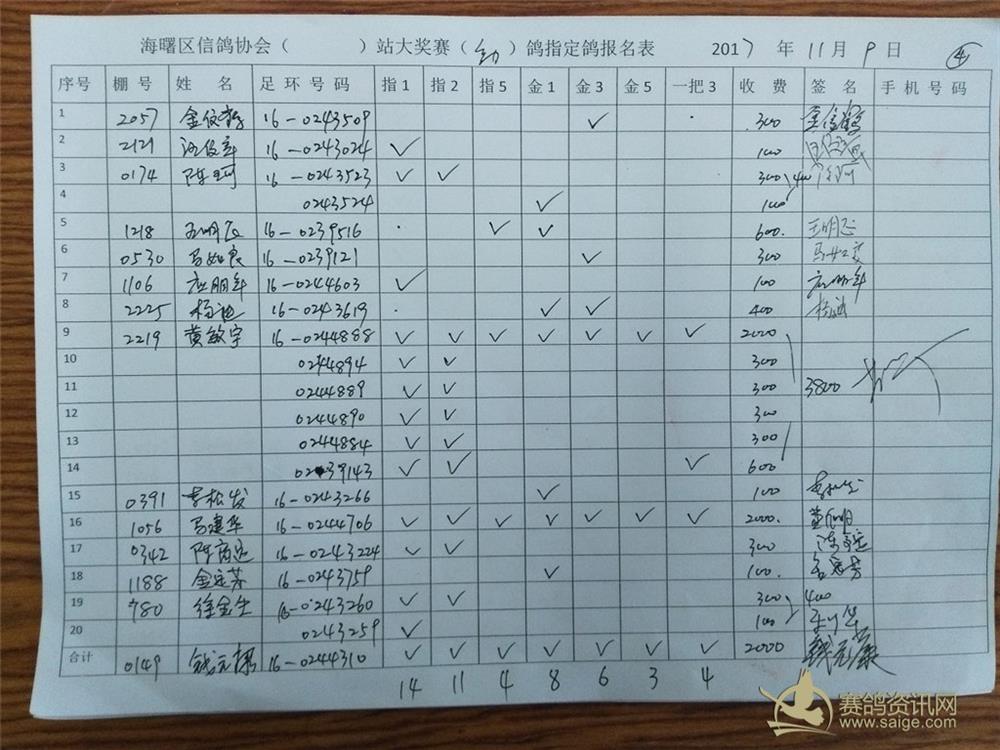 海曙区信鸽协会（ ）站大奖赛（ ）鸽指定鸽报名表 2017 年 11 月 9 日 ④
序号 棚号 姓名 足环号码 指1 指2 指5 金1 金3 金5 一把3 收费 签名 手机号码
1 2057 16-0243509 ✓ 300
2 2121 16-0243024 ✓ 100
3 0174 陈珂 16-0243523 ✓ ✓ 300 400
4 0243524 ✓ 100
5 1218 16-0239516 ✓ ✓ 600
6 0530 马如良 16-0239121 ✓ 300
7 1106 应朋年 16-0244603 ✓ 100 应朋年
8 2225 16-0243619 ✓ ✓ 400
9 2219 黄敏宇 16-0244888 ✓ ✓ ✓ ✓ ✓ ✓ ✓ 2000
10 0244894 ✓ ✓ 300
11 0244889 ✓ ✓ 300 3800
12 0244890 ✓ ✓ 300
13 0244884 ✓ ✓ 300
14 0239143 ✓ ✓ ✓ 600
15 0391 李松发 16-0243266 ✓ 100
16 1056 马建华 16-0244706 ✓ ✓ ✓ ✓ ✓ ✓ ✓ 2000
17 0342 16-0243224 ✓ ✓ 300
18 1188 金定芳 16-0243759 ✓ 100 金定芳
19 780 徐金生 16-0243260 ✓ ✓ 300 400
20 0243259 ✓ 100
合计 0149 16-0244310 ✓ ✓ ✓ ✓ ✓ ✓ ✓ 2000
14 11 4 8 6 3 4
赛鸽资讯网
www.saige.com